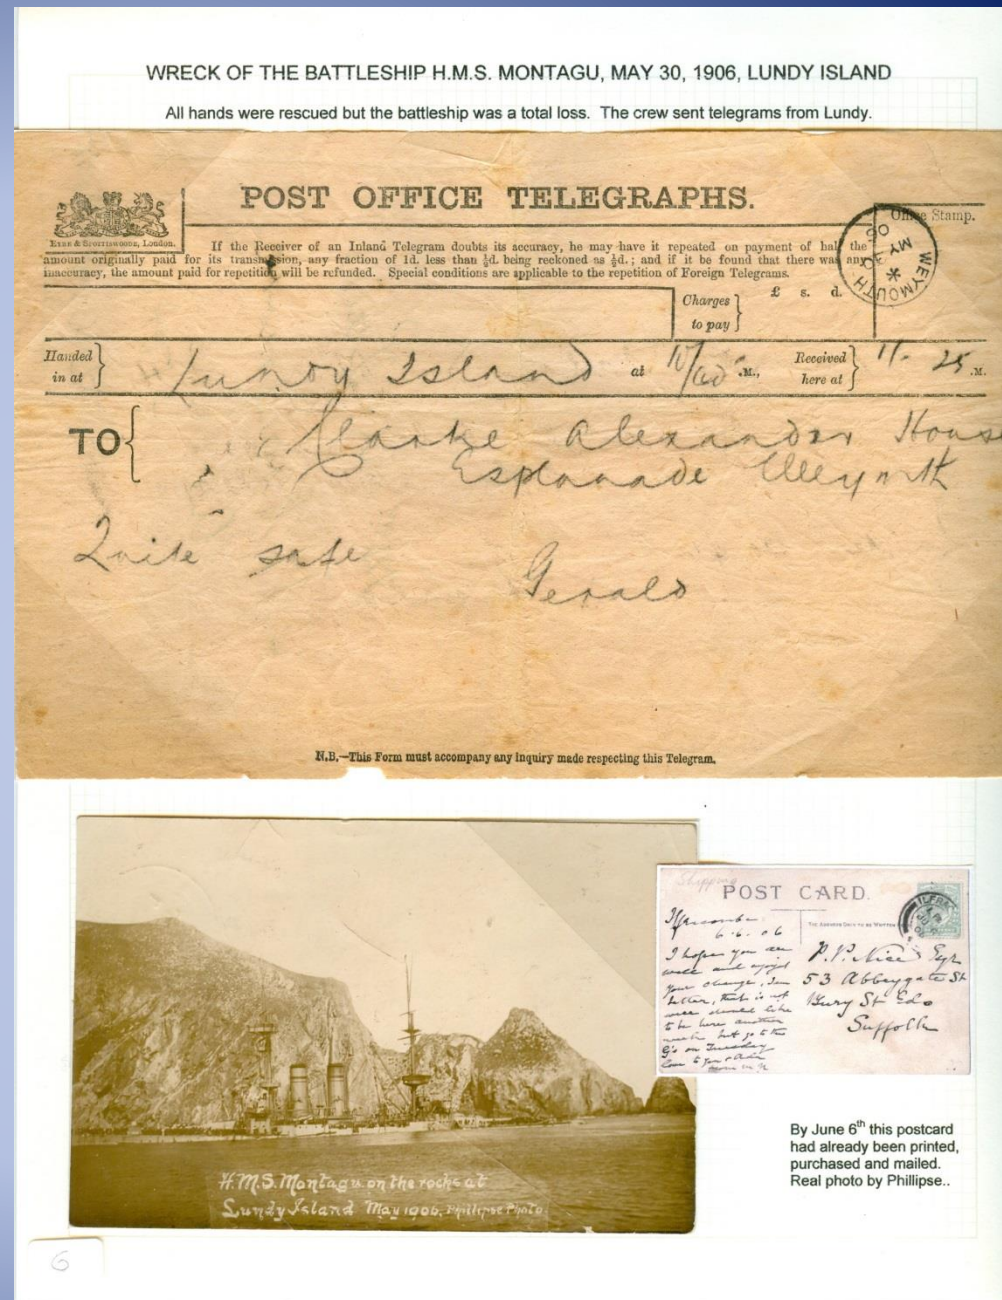 WRECK OF THE BATTLESHIP H.M.S. MONTAGU, MAY 30, 1906, LUNDY ISLAND
All hands were rescued but the battleship was a total loss. The crew sent telegrams from Lundy.
POST OFFICE TELEGRAPHS.
EYRE & SPOTTISWOODE, London.
Office Stamp.
If the Receiver of an Inland Telegram doubts its accuracy, he may have it repeated on payment of half the
amount originally paid for its transmission, any fraction of 1d. less than ½d. being reckoned as ½d.; and if it be found that there was any
inaccuracy, the amount paid for repetition will be refunded. Special conditions are applicable to the repetition of Foreign Telegrams.
WEYMOUTH
MY
06
Charges
to pay
£ s. d.
Handed
in at
Lundy Island
at
.M.,
Received
here at
11-25
.M.
TO
Clarke Alexander House
Esplanade Weymth
Quite safe
Gerald
N.B.—This Form must accompany any inquiry made respecting this Telegram.
Shipping
POST CARD.
THE ADDRESS ONLY TO BE WRITTEN
ILFRA
Ilfracombe
6.6.06
I hope you are
well and enjoyed
your change, I am
better, that is not
well should like
to be here another
week but go to the
on Tuesday
love to you
P.V. Nice Esqr
53 Abbeygate St
Bury St Eds
Suffolk
H.M.S. Montagu on the rocks at
Lundy Island May 1906. Phillipse Photo.
By June 6th this postcard
had already been printed,
purchased and mailed.
Real photo by Phillipse..
6